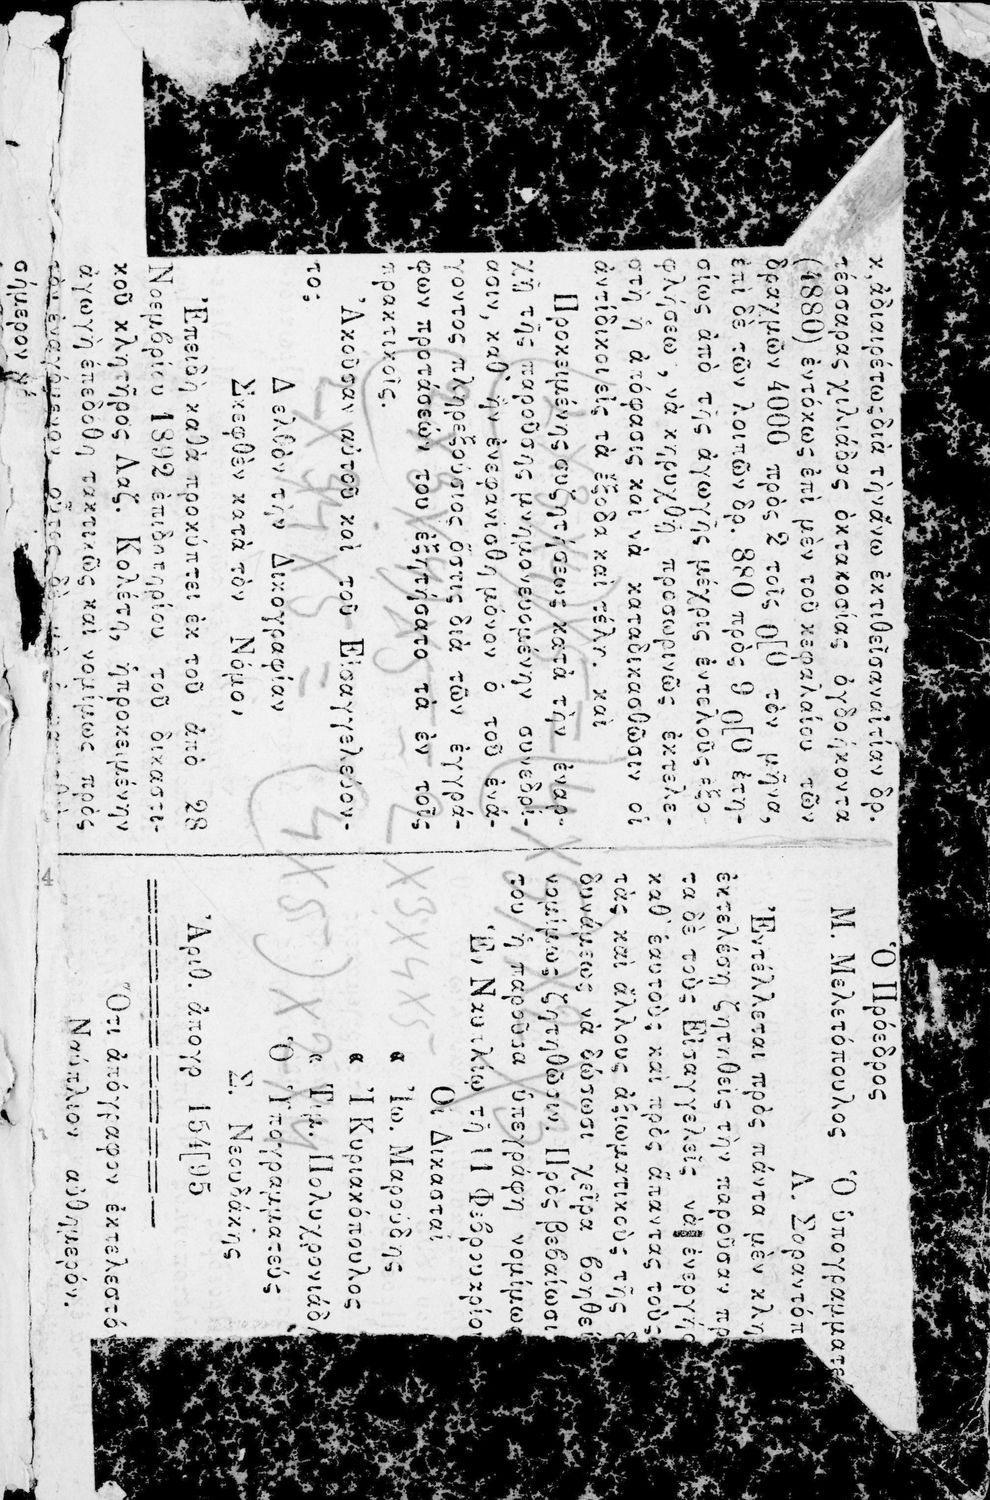 κ᾽ ἀδιαιρέτως διὰ τὴν ἄνω ἐκτιθεῖσαν αἰτίαν δρ.
τέσσαρας χιλιάδας ὀκτακοσίας ὀγδοήκοντα
(4880) ἐντόκως ἐπὶ μὲν τοῦ κεφαλαίου τῶν
δραχμῶν 4000 πρὸς 2 τοῖς 0[0 τὸν μῆνα,
ἐπὶ δὲ τῶν λοιπῶν δρ. 880 πρὸς 9 0[0 ἐτη-
σίως ἀπὸ τῆς ἀγωγῆς μέχρις ἐντελοῦς ἐξο-
φλήσεως, νὰ κηρυχθῇ προσωρινῶς ἐκτελε-
στὴ ἡ ἀπόφασις καὶ νὰ καταδικασθῶσιν οἱ
ἀντίδικοι εἰς τὰ ἔξοδα καὶ τέλη. καὶ
Προκειμένης συζητήσεως κατὰ τὴν ἐναρ-
χῇ τῆς παρούσης μνημονευομένην συνεδρί-
ασιν, καθ᾽ ἣν ἐνεφανίσθη μόνον ὁ τοῦ ἐνά-
γοντος πληρεξούσιος ὅστις διὰ τῶν ἐγγρά-
φων προτάσεών του ἐξῃτήσατο τὰ ἐν τοῖς
πρακτικοῖς.
Ἀκοῦσαν αὐτοῦ καὶ τοῦ Εἰσαγγελεύον-
τος
Δελθὸν τὴν Δικογραφίαν
Σκεφθὲν κατὰ τὸν Νόμον
Ἐπειδὴ καθὰ προκύπτει ἐκ τοῦ ἀπὸ 28
Νοεμβρίου 1892 ἐπιδοτηρίου τοῦ δικαστι-
κοῦ κλητῆρος Λαζ. Κολέτη, ἡ προκειμένη
ἀγωγὴ ἐπεδόθη τακτικῶς καὶ νομίμως πρὸς
σήμερον
4
Ὁ Πρόεδρος
Μ. Μελετόπουλος Ὁ ὑπογραμματε
Λ. Σοραντόπ
Ἐντέλλεται πρὸς πάντα μὲν κλη
ἐκτελέσῃ ζητηθεὶς τὴν παροῦσαν πρ
τα δὲ τοὺς Εἰσαγγελεῖς νὰ ἐνεργή
καθ᾽ ἑαυτοὺς καὶ πρὸς ἅπαντας τοὺς
τὰς καὶ ἄλλους ἀξιωματικοὺς τῆς δ
δυνάμεως νὰ δώσωσι χεῖρα βοηθεί
νομίμως ζητηθῶσιν. Πρὸς βεβαίωσι
του ἡ παροῦσα ὑπεγράφη νομίμω
Ἐν Ναυπλίῳ τῇ 11 Φεβρουαρίο
Οἱ Δικασταὶ
« Ἰω. Μαρούδης
« Ἰ Κυριακόπουλος
« Τιμ. Πολυχρονιάδη
Ὁ Ὑπογραμματεύς
Σ. Νεουδάκης
Ἀριθ. ἀπογρ 154[95
Ὅτι ἀπόγραφον ἐκτελεστό
Ναύπλιον αὐθημερόν.